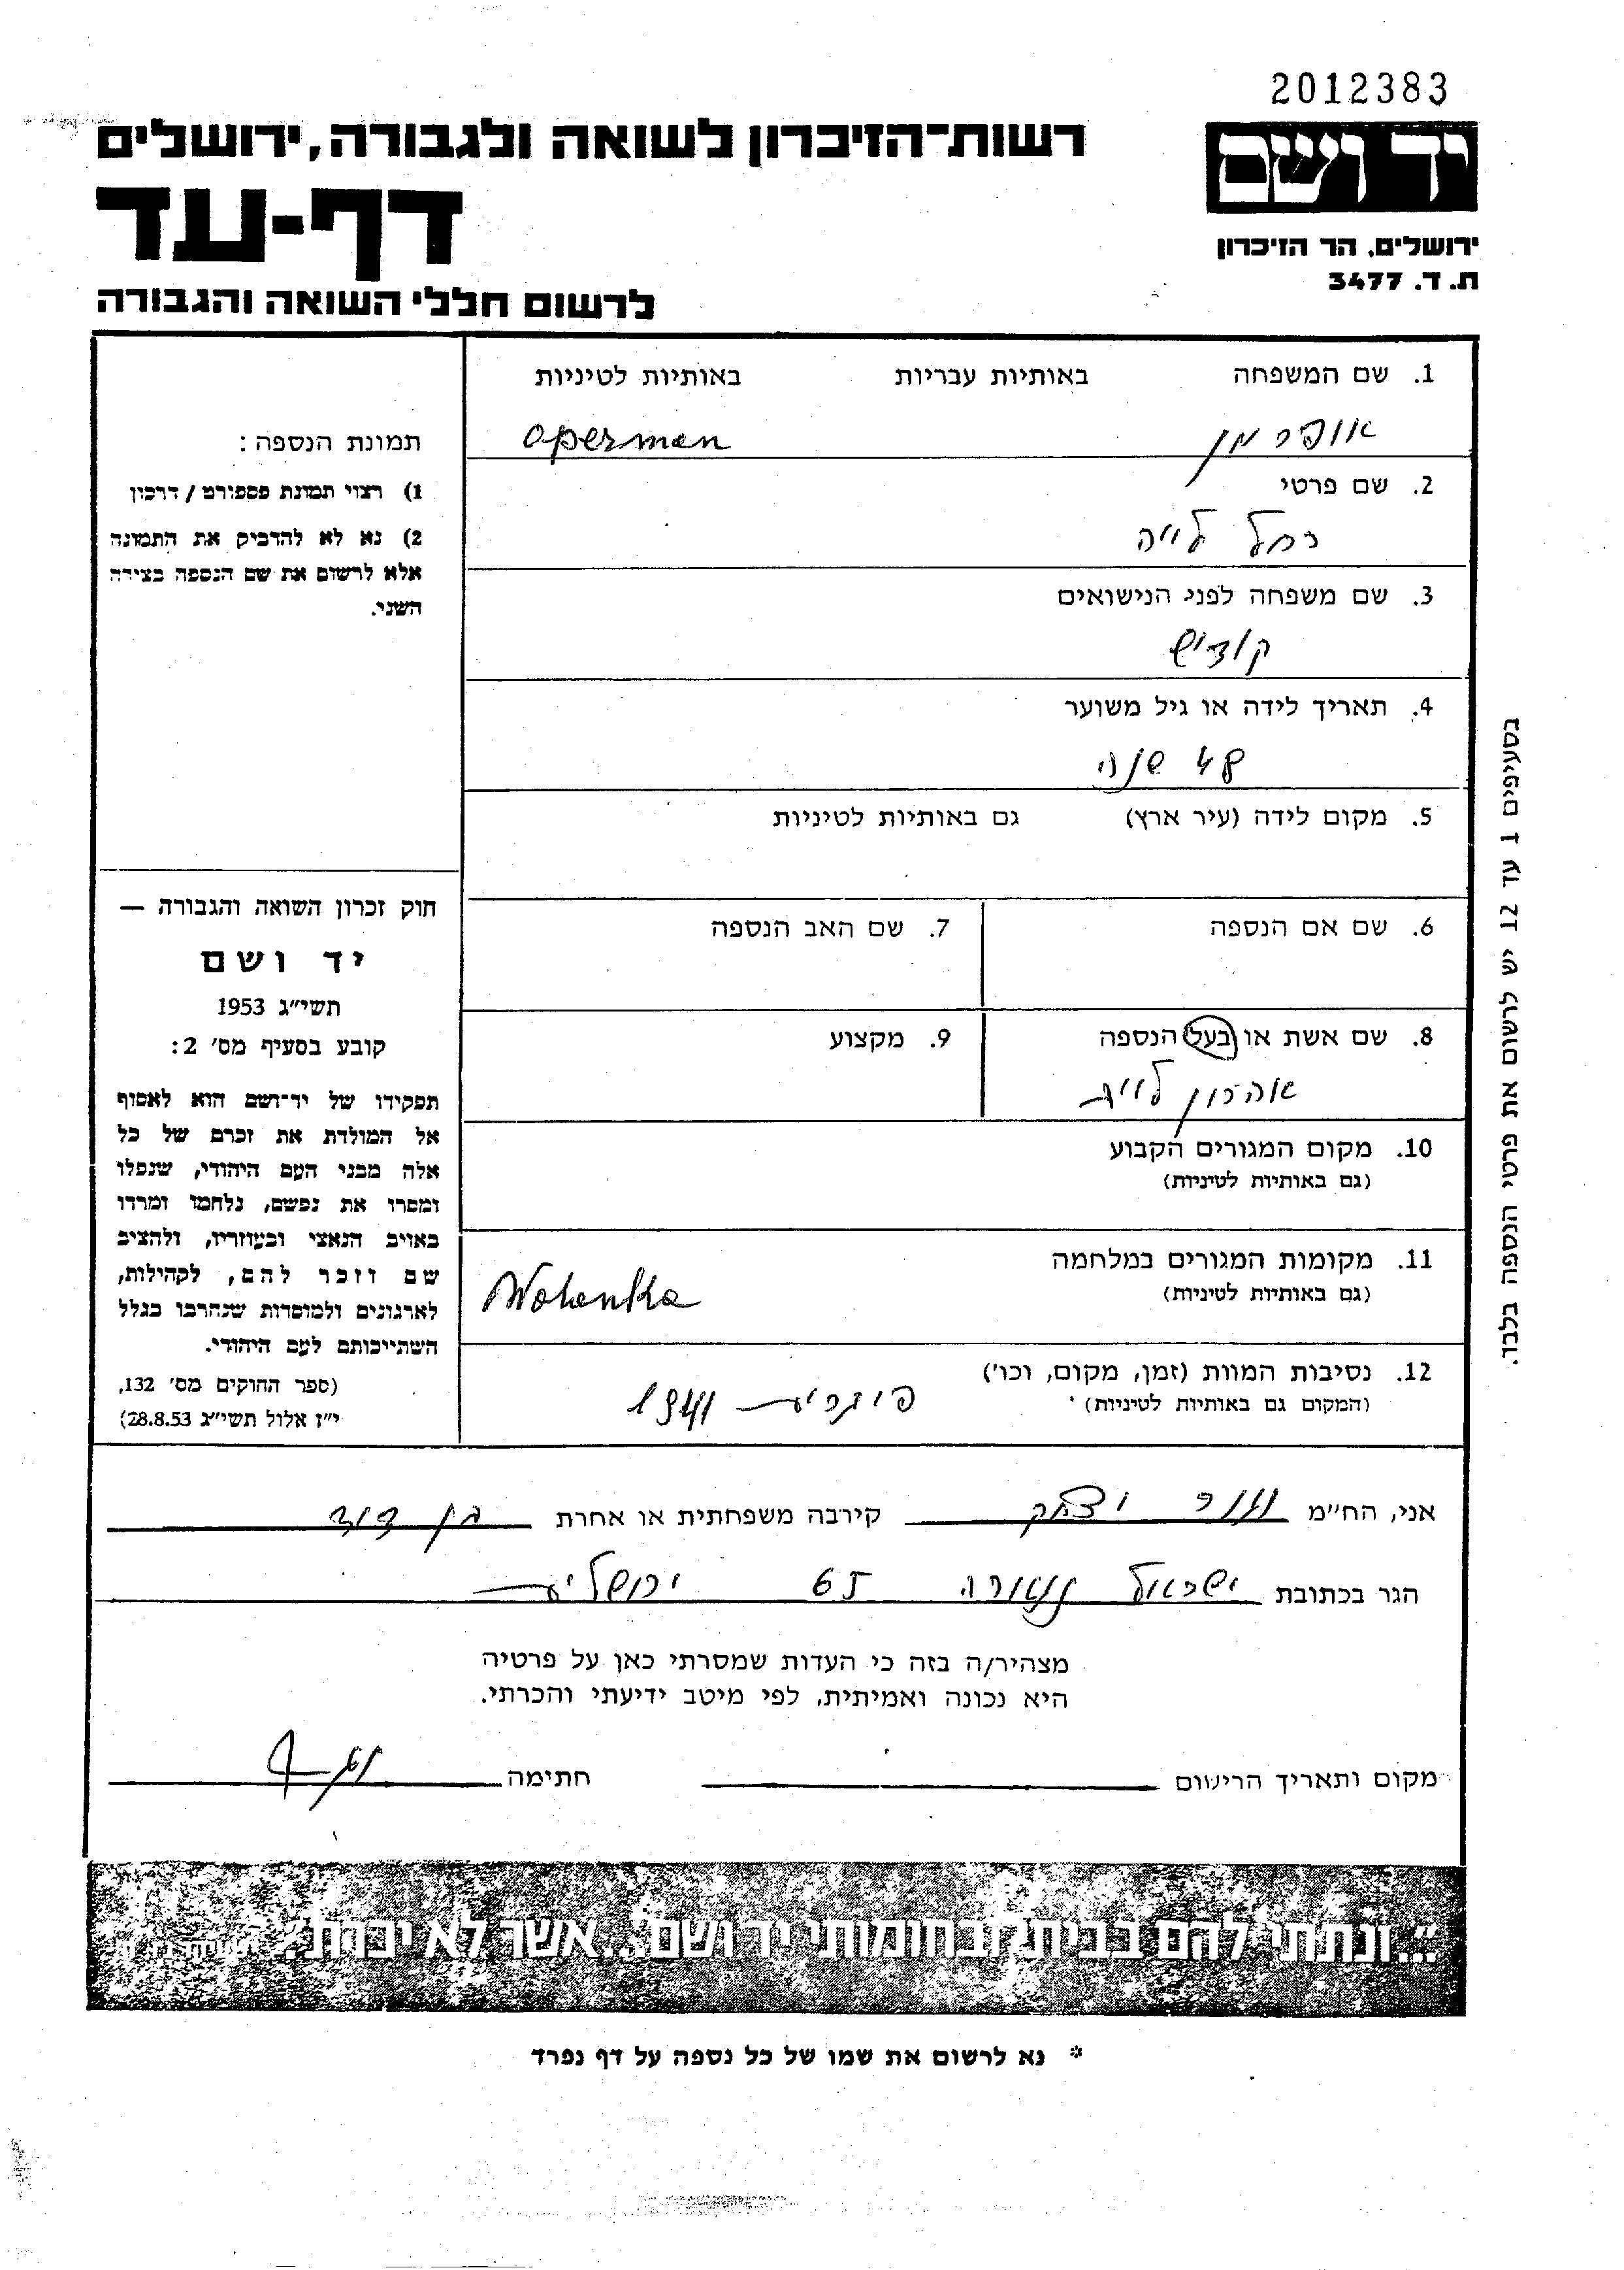 2012383
יד ושם
ירושלים, הר הזיכרון
ת. ד. 3477
רשות־הזיכרון לשואה ולגבורה, ירושלים
דף-עד
לרשום חללי השואה והגבורה
1. שם המשפחה באותיות עבריות באותיות לטיניות
אופרמן operman
2. שם פרטי
רחל לייה
3. שם משפחה לפני הנישואים
קודיש
4. תאריך לידה או גיל משוער
48 שנה
5. מקום לידה (עיר ארץ) גם באותיות לטיניות
6. שם אם הנספה 7. שם האב הנספה
8. שם אשת או בעל הנספה 9. מקצוע
אהרון לייב
10. מקום המגורים הקבוע
(גם באותיות לטיניות)
11. מקומות המגורים במלחמה
(גם באותיות לטיניות)
Wolanka
12. נסיבות המוות (זמן, מקום, וכו')
(המקום גם באותיות לטיניות)
1941
תמונת הנספה:
1) רצוי תמונת פספורט / דרכון
2) נא לא להדביק את התמונה
אלא לרשום את שם הנספה בצידה
השני.
חוק זכרון השואה והגבורה —
יד ושם
תשי״ג 1953
קובע בסעיף מס׳ 2:
תפקידו של יד־ושם הוא לאסוף
אל המולדת את זכרם של כל
אלה מבני העם היהודי, שנפלו
ומסרו את נפשם, נלחמו ומרדו
באויב הנאצי ובעוזריו, ולהציב
שם וזכר להם, לקהילות,
לארגונים ולמוסדות שנהרבו בגלל
השתייכותם לעם היהודי.
(ספר החוקים מס׳ 132,
י״ז אלול תשי״ג 28.8.53)
בסעיפים 1 עד 12 יש לרשום את פרטי הנספה בלבד.
אני, הח״מ יצחק קירבה משפחתית או אחרת בן דוד
הגר בכתובת ישראל 65 ירושלים
מצהיר/ה בזה כי העדות שמסרתי כאן על פרטיה
היא נכונה ואמיתית, לפי מיטב ידיעתי והכרתי.
מקום ותאריך הרישום חתימה
״...ונתתי להם בביתי ובחומותי יד ושם...אשר לא יכרת״
* נא לרשום את שמו של כל נספה על דף נפרד